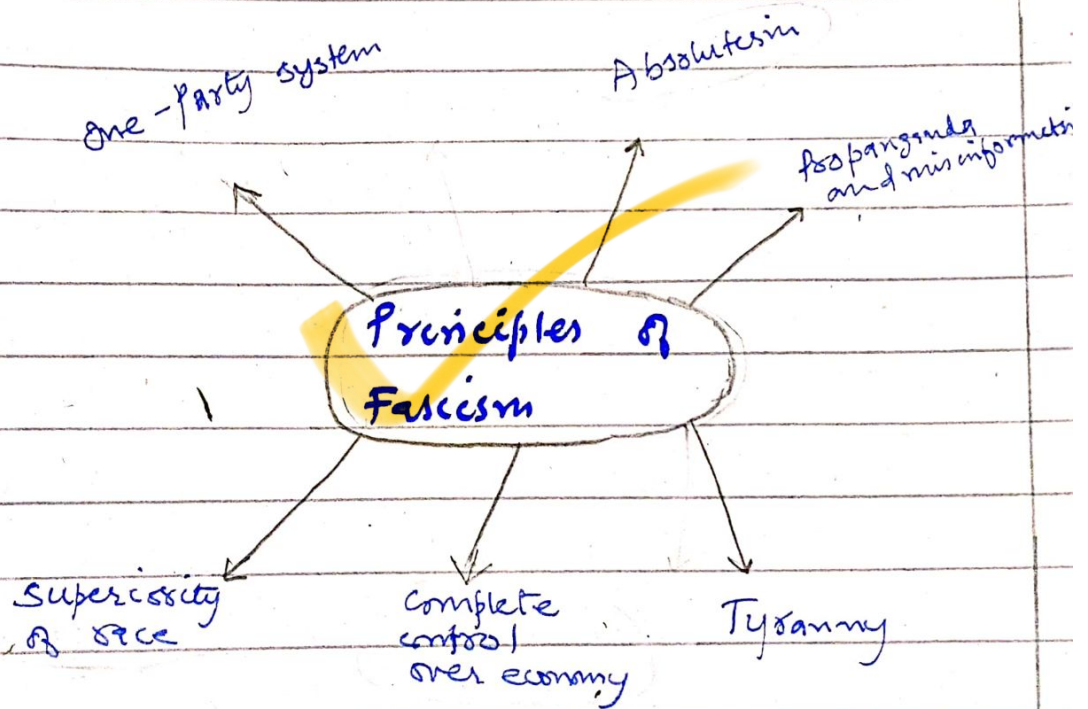 one-Party system
Absolutesim
Propanganda
and misinformati
Principles of
Fascism
Superiority
of race
complete
control
over economy
Tyranny